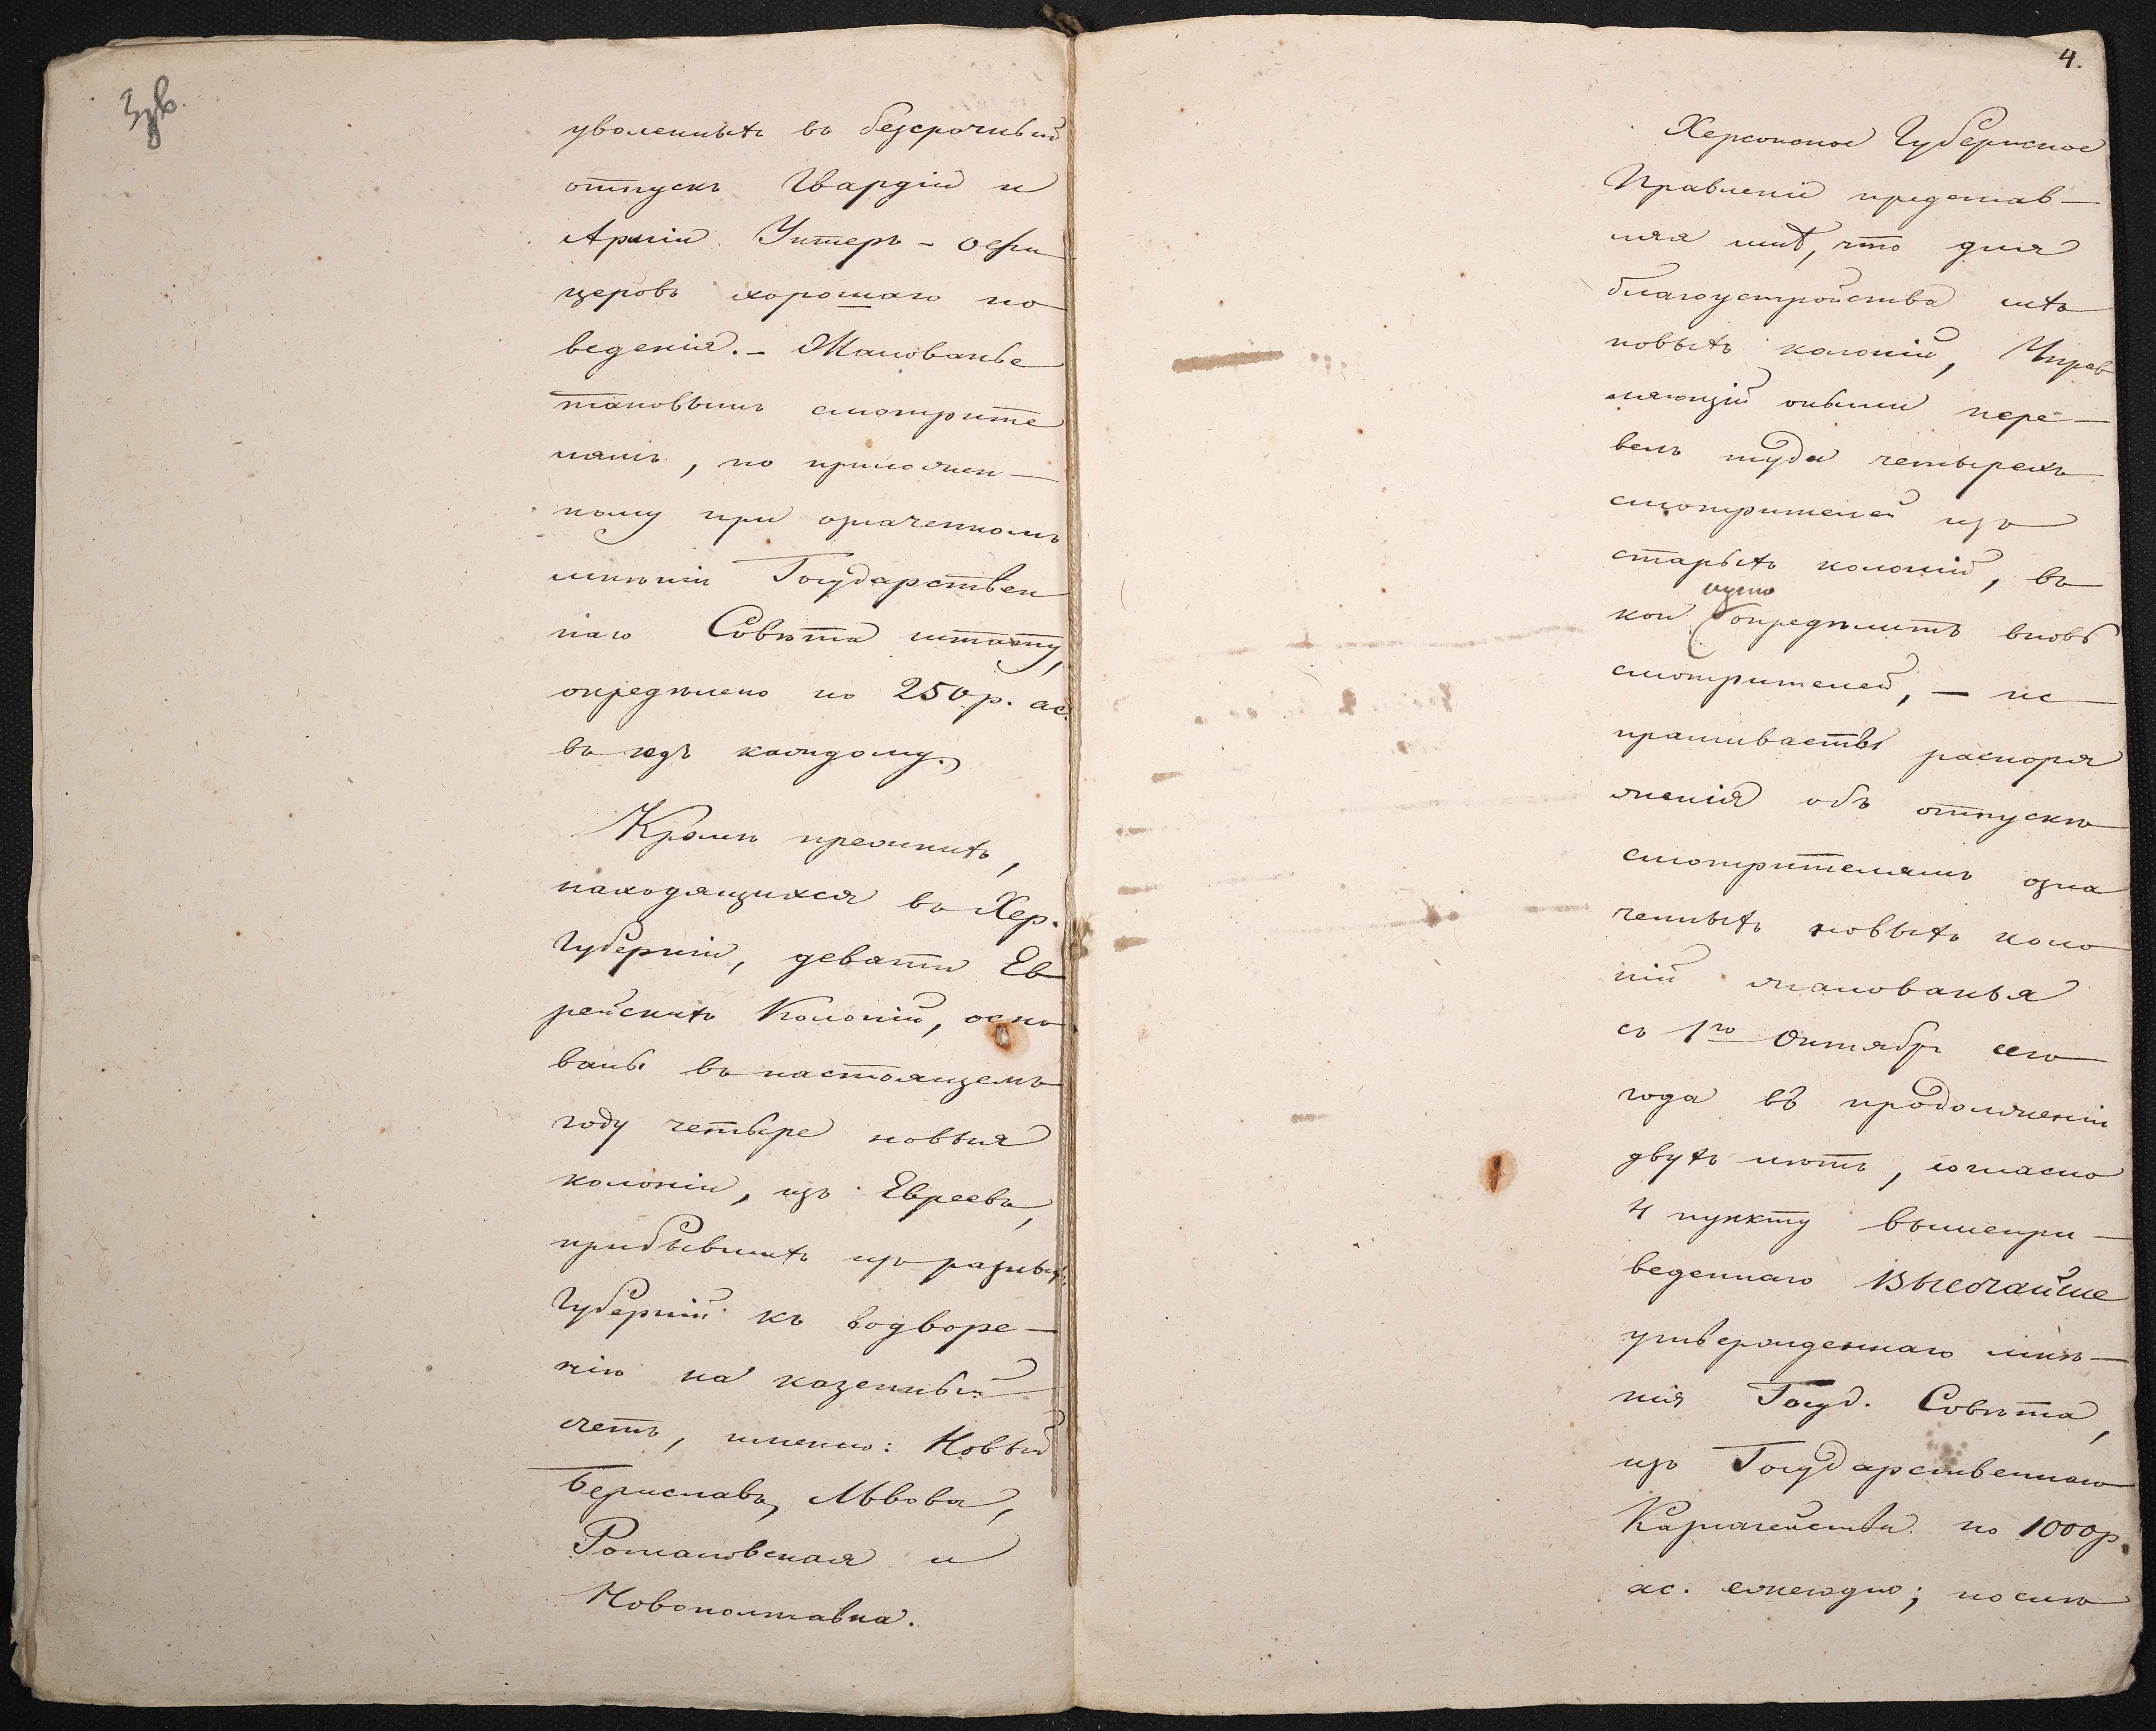 Зоб.
уволенныхъ въ безсрочный
отпускъ Гвардіи и
Арміи Унтеръ-офи
церовъ хорошаго по
веденія. – Жалованье
таковымъ смотрите
лямъ, по приложен–
ному при означенномъ
мнѣніи Государствен
наго Совѣта штату,
опредѣлено по 250 р. ас.
въ годъ каждому.
Кромѣ прежнихъ,
находящихся въ Хер.
Губерніи, девяти Ев
рейскихъ Колоній, осно
ваны въ настоящемъ
году четыре новыя
колоніи, изъ Евреевъ,
прибывшихъ изъ разныхъ
Губерній къ водворе–
нію на казенный
счетъ, именно: Новый
Бериславъ, Львова,
Романовская и
Новополтавка.
4.
Херсонское Губернское
Правленіе представ–
ляя мнѣ, что для
благоустройства сихъ
новыхъ колоній, Управ
ляющій оными пере–
велъ туда четырехъ
смотрителей изъ
старыхъ колоній, въ
нужно
кои опредѣлить вновь
смотрителей, – ис
прашиваетъ распоря
женія объ отпускѣ
смотрителямъ озна
ченныхъ новыхъ коло
ній жалованья
съ 1го Октября сего
года въ продолженіи
двухъ лѣтъ, согласно
4 пункту вышепри–
веденнаго Высочайше
утвержденнаго мнѣ–
нія Госуд. Совѣта,
изъ Государственнаго
Казначейства по 1000 р.
ас. ежегодно; послѣ